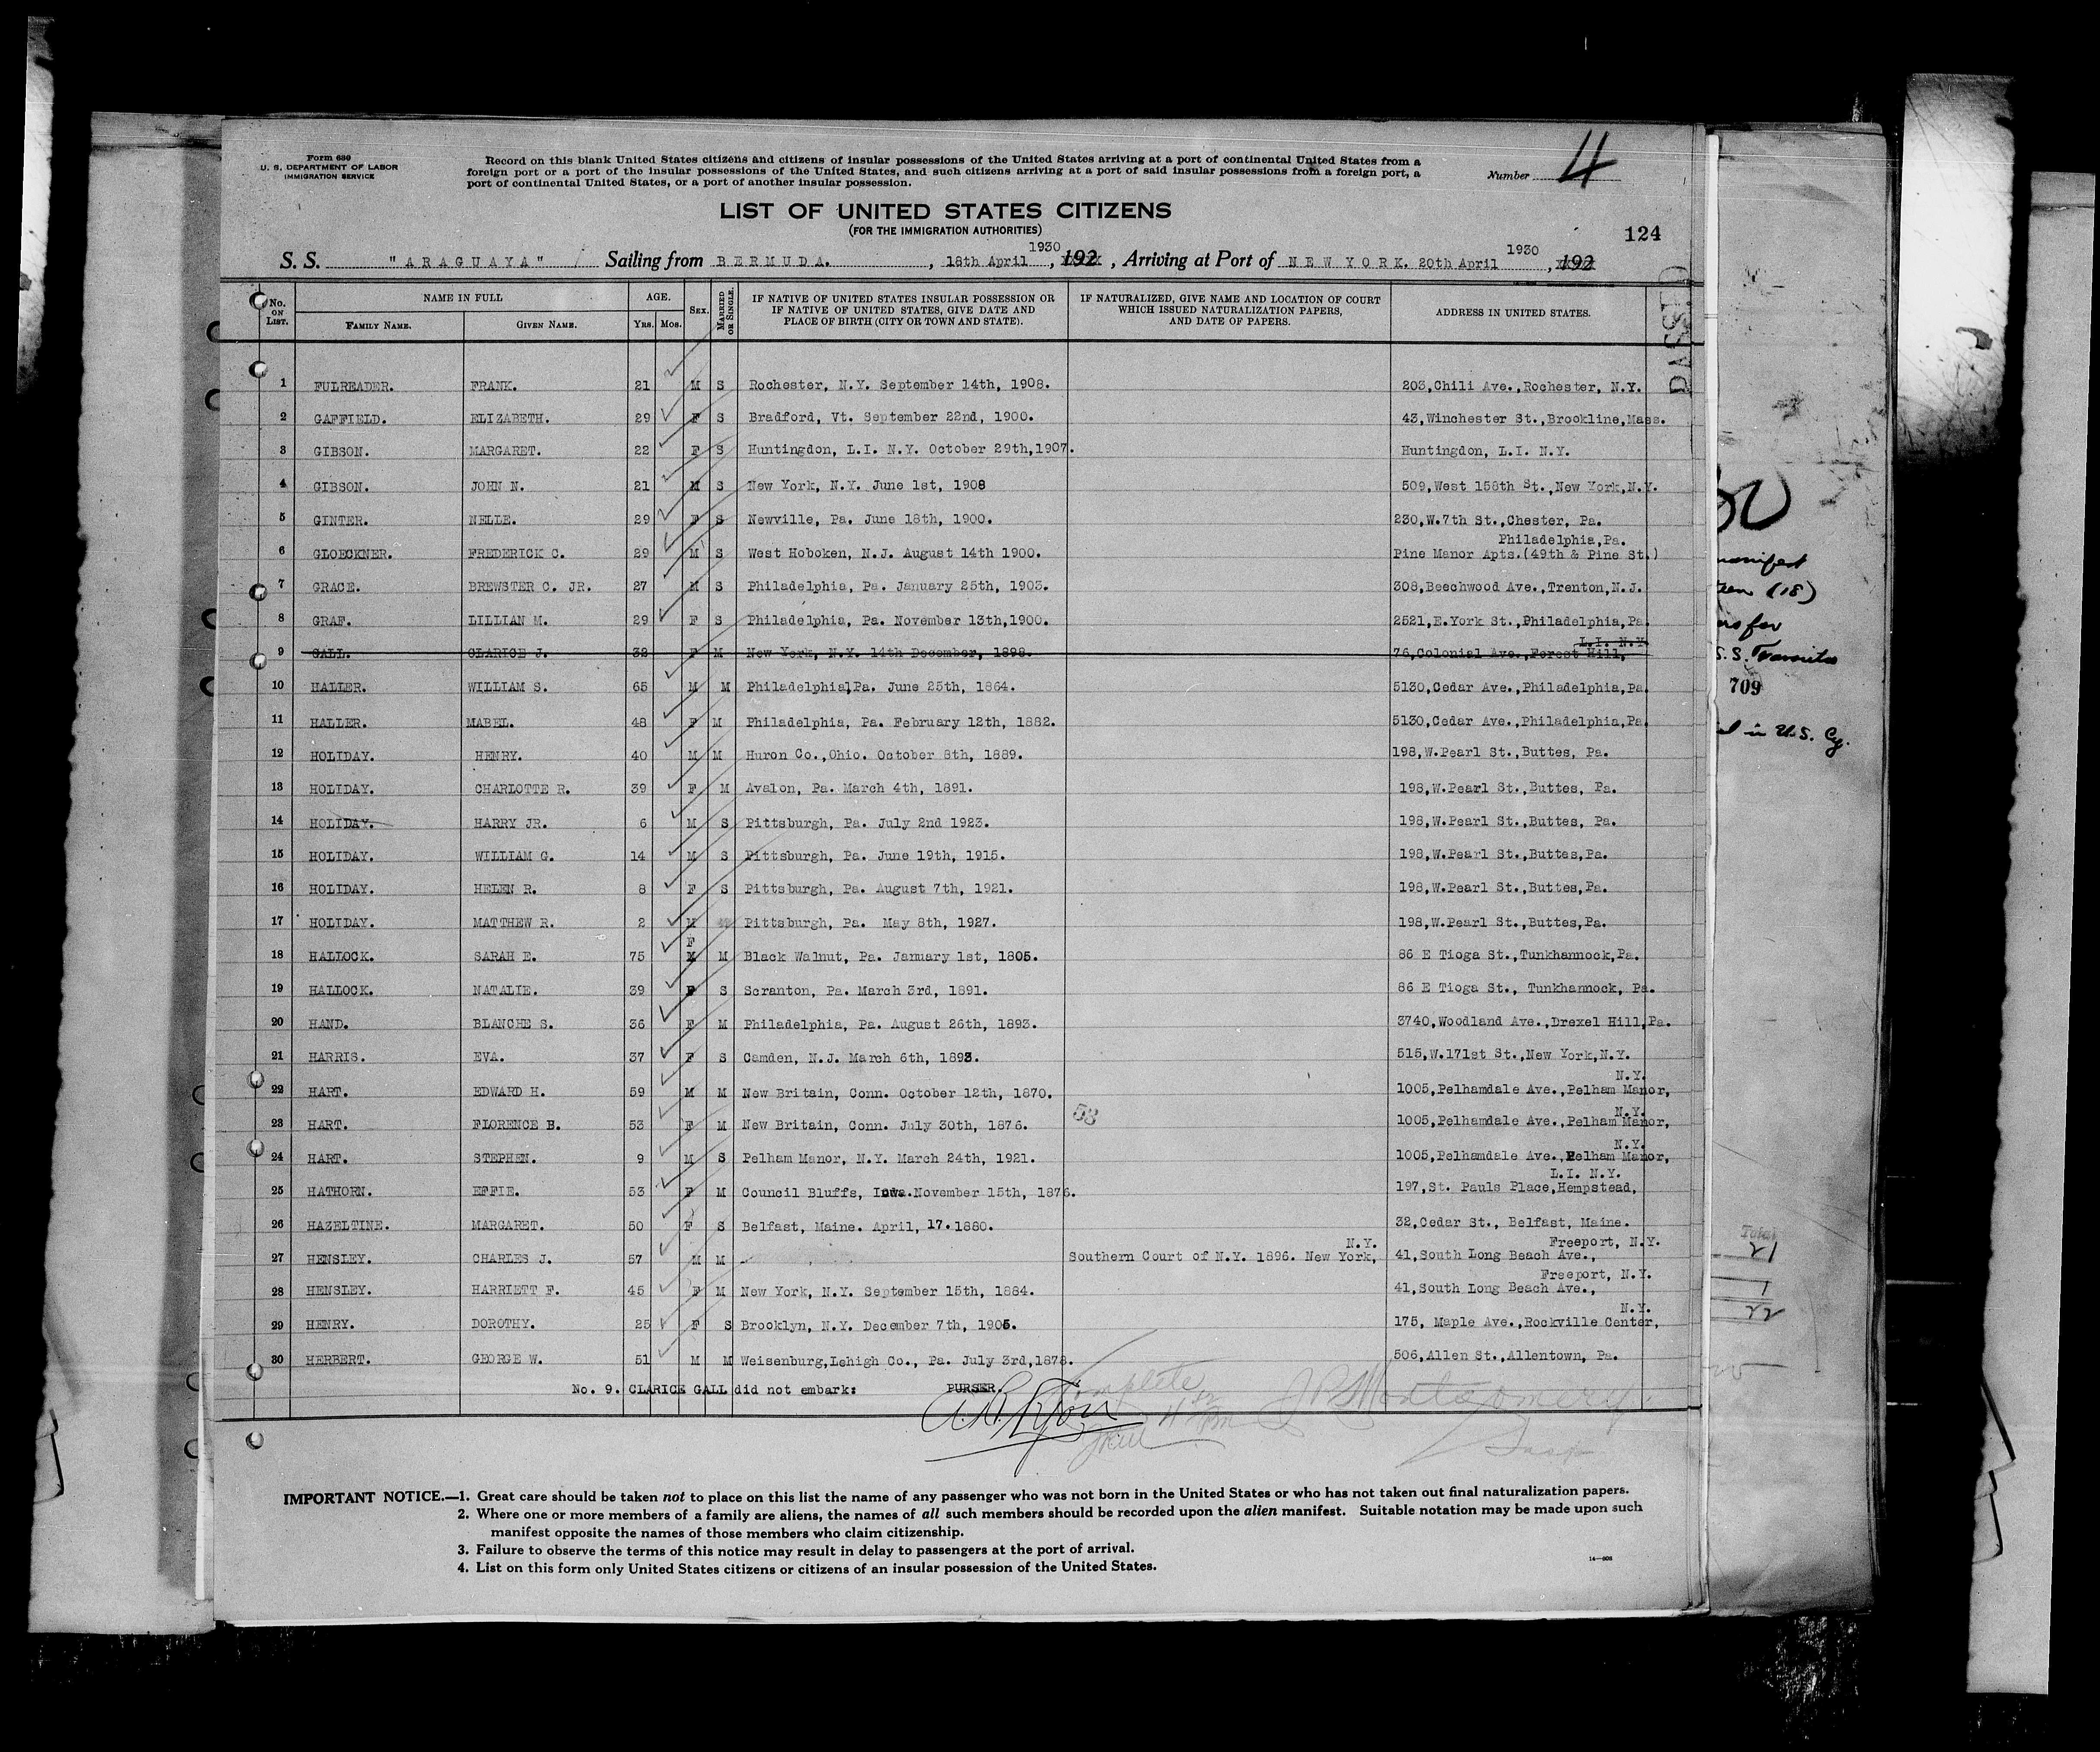 Form 630
U. S. DEPARTMENT OF LABOR
IMMIGRATION SERVICE
Record on this blank United States citizens and citizens of insular possessions of the United States arriving at a port of continental United States from a
foreign port or a port of the insular possessions of the United States, and such citizens arriving at a port of said insular possessions from a foreign port, a
port of continental United States, or a port of another insular possession.
Number 4
LIST OF UNITED STATES CITIZENS
(FOR THE IMMIGRATION AUTHORITIES)
124
S. S. "ARAGUAYA" Sailing from BERMUDA. , 18th April 1930, 192 , Arriving at Port of NEW YORK. 20th April 1930, 192
PASSED
No. ON LIST. NAME IN FULL FAMILY NAME. GIVEN NAME. AGE. YRS. MOS. SEX. MARRIED OR SINGLE. IF NATIVE OF UNITED STATES INSULAR POSSESSION OR IF NATIVE OF UNITED STATES, GIVE DATE AND PLACE OF BIRTH (CITY OR TOWN AND STATE). IF NATURALIZED, GIVE NAME AND LOCATION OF COURT WHICH ISSUED NATURALIZATION PAPERS, AND DATE OF PAPERS. ADDRESS IN UNITED STATES.
1 FULREADER. FRANK. 21 M S Rochester, N.Y. September 14th, 1908. 203,Chili Ave.,Rochester, N.Y.
2 GAFFIELD. ELIZABETH. 29 F S Bradford, Vt. September 22nd, 1900. 43,Winchester St.,Brookline,Mass.
3 GIBSON. MARGARET. 22 F S Huntingdon, L.I. N.Y. October 29th,1907. Huntingdon, L.I. N.Y.
4 GIBSON. JOHN N. 21 M S New York, N.Y. June 1st, 1908 509,West 158th St.,New York,N.Y.
5 GINTER. NELLE. 29 F S Newville, Pa. June 18th, 1900. 230,W.7th St.,Chester, Pa.
Philadelphia,Pa.
6 GLOECKNER. FREDERICK C. 29 M S West Hoboken, N.J. August 14th 1900. Pine Manor Apts.(49th & Pine St.)
7 GRACE. BREWSTER C. JR. 27 M S Philadelphia, Pa. January 25th, 1903. 308,Beechwood Ave.,Trenton,N.J.
8 GRAF. LILLIAN M. 29 F S Philadelphia, Pa. November 13th,1900. 2521,E.York St.,Philadelphia,Pa.
L.I. N.Y.
9 GALL. CLARICE J. 32 F M New York, N.Y. 14th December, 1898. 76,Colonial Ave.,Forest Hill,
10 HALLER. WILLIAM S. 65 M M Philadelphia,Pa. June 25th, 1864. 5130,Cedar Ave.,Philadelphia,Pa.
11 HALLER. MABEL. 48 F M Philadelphia, Pa. February 12th, 1882. 5130,Cedar Ave.,Philadelphia,Pa.
12 HOLIDAY. HENRY. 40 M M Huron Co.,Ohio. October 8th, 1889. 198,W.Pearl St.,Buttes, Pa.
13 HOLIDAY. CHARLOTTE R. 39 F M Avalon, Pa. March 4th, 1891. 198,W.Pearl St.,Buttes, Pa.
14 HOLIDAY. HARRY JR. 6 M S Pittsburgh, Pa. July 2nd 1923. 198,W.Pearl St.,Buttes, Pa.
15 HOLIDAY. WILLIAM G. 14 M S Pittsburgh, Pa. June 19th, 1915. 198,W.Pearl St.,Buttes,Pa.
16 HOLIDAY. HELEN R. 8 F S Pittsburgh, Pa. August 7th, 1921. 198,W.Pearl St.,Buttes,Pa.
17 HOLIDAY. MATTHEW R. 2 M Pittsburgh, Pa. May 8th, 1927. 198,W.Pearl St.,Buttes,Pa.
F
18 HALLOCK. SARAH E. 75 M M Black Walnut, Pa. January 1st, 1805. 86 E Tioga St.,Tunkhannock,Pa.
19 HALLOCK. NATALIE. 39 F S Scranton, Pa. March 3rd, 1891. 86 E Tioga St., Tunkhannock, Pa.
20 HAND. BLANCHE S. 36 F M Philadelphia, Pa. August 26th, 1893. 3740,Woodland Ave.,Drexel Hill,Pa.
21 HARRIS. EVA. 37 F S Camden, N.J. March 6th, 1893. 515,W.171st St.,New York,N.Y.
N.Y.
22 HART. EDWARD H. 59 M M New Britain, Conn. October 12th, 1870. 1005,Pelhamdale Ave.,Pelham Manor,
N.Y.
23 HART. FLORENCE B. 53 F M New Britain, Conn. July 30th, 1876. 58 1005,Pelhamdale Ave.,Pelham Manor,
N.Y.
24 HART. STEPHEN. 9 M S Pelham Manor, N.Y. March 24th, 1921. 1005,Pelhamdale Ave.,Pelham Manor,
L.I. N.Y.
25 HATHORN. EFFIE. 53 F M Council Bluffs, Iowa.November 15th, 1876. 197,St. Pauls Place,Hempstead,
26 HAZELTINE. MARGARET. 50 F S Belfast, Maine. April, 17.1880. 32,Cedar St., Belfast, Maine.
N.Y. Freeport, N.Y.
27 HENSLEY. CHARLES J. 57 M M Southern Court of N.Y. 1896. New York, 41,South Long Beach Ave.,
Freeport, N.Y.
28 HENSLEY. HARRIETT F. 45 F M New York, N.Y. September 15th, 1884. 41,South Long Beach Ave.,
N.Y.
29 HENRY. DOROTHY. 25 F S Brooklyn, N.Y. December 7th, 1905. 175, Maple Ave.,Rockville Center,
30 HERBERT. GEORGE W. 51 M M Weisenburg,Lehigh Co., Pa. July 3rd,1878. 506,Allen St.,Allentown, Pa.
No. 9. CLARICE GALL did not embark: PURSER.
Complete
JR Montgomery
IMPORTANT NOTICE.—1. Great care should be taken not to place on this list the name of any passenger who was not born in the United States or who has not taken out final naturalization papers.
2. Where one or more members of a family are aliens, the names of all such members should be recorded upon the alien manifest. Suitable notation may be made upon such
manifest opposite the names of those members who claim citizenship.
3. Failure to observe the terms of this notice may result in delay to passengers at the port of arrival.
4. List on this form only United States citizens or citizens of an insular possession of the United States.
14—808
manifest
(18)
for
S.S. Transits
709
in U.S. Cy.
Total
21
1
22